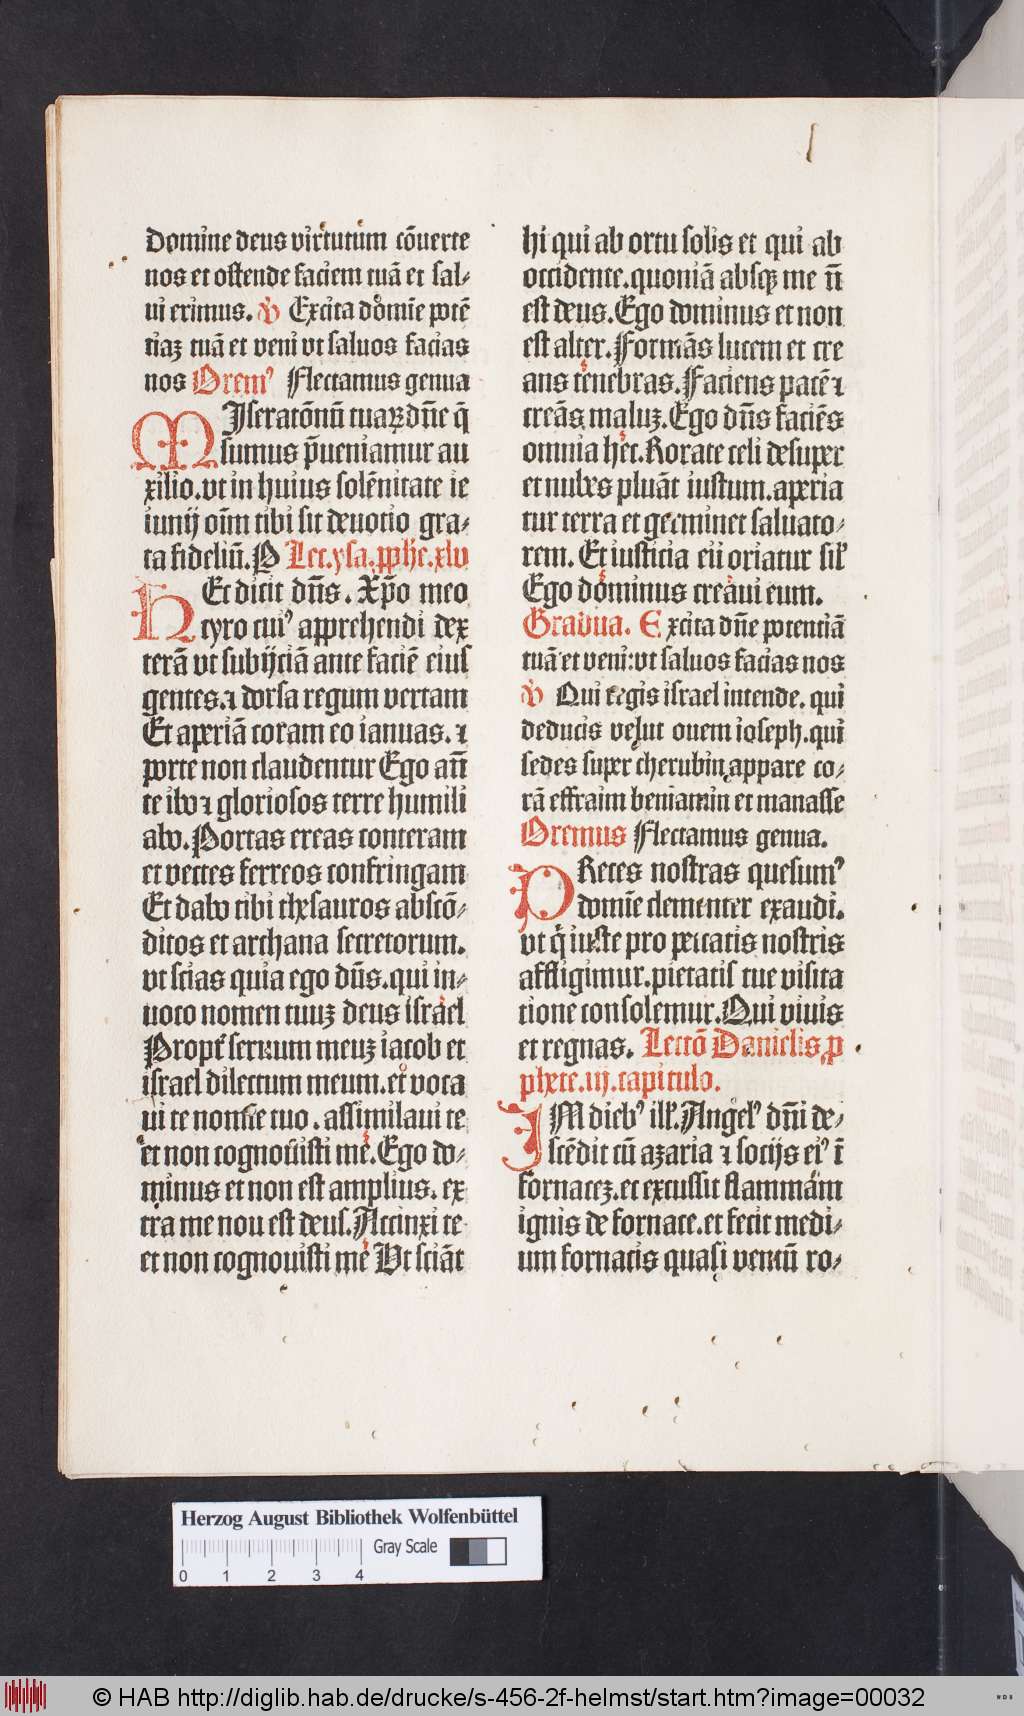 Domine deus virtutum cōuerte
nos et ostende faciem tuā et sal⸗
ui erimus. ℣ Excita domīe potē
tiaꝫ tuā et veni vt saluos facias
nos Oremꝰ Flectamus genua
MIseratōnū tuaꝝ dn̄e q̄
sumus p̄ueniamur au
xilio. vt in huius solēnitate ie
iunij oīm tibi sit deuotio gra⸗
ta fideliū. P Lec. ysa. ꝓphe. xlv
HEc dicit dn̄s. Xp̄o meo
cyro cuiꝰ apprehendi dex
terā vt subijciā ante faciē eius
gentes. ⁊ dorsa regum vertam
Et aperiā coram eo ianuas. ⁊
porte non claudentur Ego an̄
te ibo ⁊ gloriosos terre humili
abo. Portas ereas conteram
et vectes ferreos confringam
Et dabo tibi thesauros abscō⸗
ditos et archana secretorum.
vt scias quia ego dn̄s. qui in⸗
uoco nomen tuuꝫ deus israel
Propt̄ seruum meuꝫ iacob et
israel dilectum meum. et voca
ui te nomīe tuo. assimilaui te
et non cognouisti me. Ego do⸗
minus et non est amplius. ex
tra me non est deus. Accinxi te
et non cognouisti me Vt sciāt
hi qui ab ortu solis et qui ab
occidente. quoniā absqꝫ me nō
est deus. Ego dominus et non
est alter. Formās lucem et cre
ans tenebras. Faciens pacē ⁊
creās maluꝫ. Ego dn̄s faciēs
omnia hec. Rorate celi desuper
et nubes pluāt iustum. aperia
tur terra et germinet saluato⸗
rem. Et iusticia eii oriatur sil̄
Ego dominus creaui eum.
Gradua. Excita dn̄e potentiā
tuā et veni: vt saluos facias nos
℣ Qui regis israel intende. qui
deducis velut ouem ioseph. qui
sedes super cherubin appare co⸗
rā effraim beniamin et manasse
Oremus Flectamus genua.
PReces nostras quesumꝰ
domīe clementer exaudi.
vt q̄ iuste pro peccatis nostris
affligimur. pietatis tue visita
tione consolemur. Qui viuis
et regnas. Lectō Danielis ꝓ
phete. iij. capitulo.
IN diebꝰ ill̄. Angelꝰ dn̄i de⸗
scēdit cū azaria ⁊ socijs eiꝰ ī
fornaceꝫ. et excussit flammam
ignis de fornace. et fecit medi⸗
um fornacis quasi ventū ro⸗
Herzog August Bibliothek Wolfenbüttel
Gray Scale
0 1 2 3 4
© HAB http://diglib.hab.de/drucke/s-456-2f-helmst/start.htm?image=00032